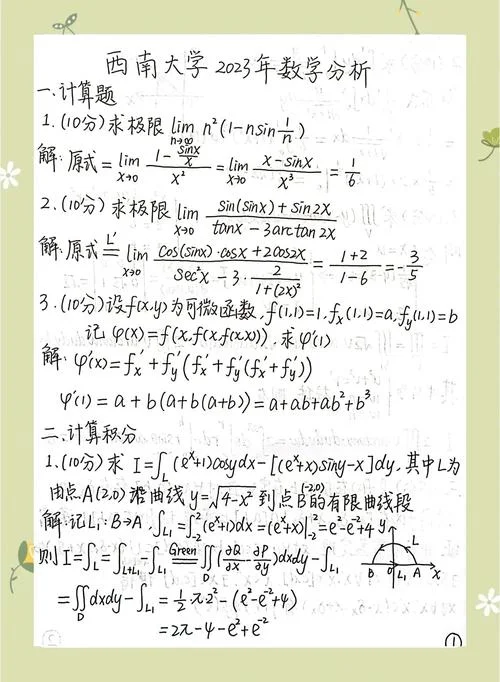 西南大学 2023年数学分析
一.计算题
1.(10分)求极限 lim_{n→∞} n²(1-n sin 1/n)
解:原式= lim_{x→0} (1 - sinx/x)/x² = lim_{x→0} (x-sinx)/x³ = 1/6
2.(10分)求极限 lim_{x→0} (sin(sinx)+sin2x)/(tanx-3arctan2x)
解:原式 =^{L'} lim_{x→0} (cos(sinx)·cosx+2cos2x)/(sec²x-3·2/(1+(2x)²)) = (1+2)/(1-6) = -3/5
3.(10分)设f(x,y)为可微函数,f(1,1)=1,f_x(1,1)=a,f_y(1,1)=b
记 φ(x)=f(x,f(x,f(x,x))),求φ'(1)
解: φ'(x)=f'_x+f'_y(f'_x+f'_y(f'_x+f'_y))
φ'(1)=a+b(a+b(a+b))=a+ab+ab²+b³
二.计算积分
1.(10分)求 I=∫_L (e^x+1)cosydx-[(e^x+x)siny-x]dy,其中L为
由点A(2,0)沿曲线 y=√(4-x²) 到点B(-2,0)的有限曲线段
解:记L₁:B→A, ∫_{L₁}=∫_{-2}^{2}(e^x+1)dx=(e^x+x)|_{-2}^{2}=e²-e^{-2}+4
则 I=∫_L=∫_{L+L₁}-∫_{L₁} =^{Green} ∬_D(∂Q/∂x-∂P/∂y)dxdy-∫_{L₁}
y L B 0 L₁ A x
=∬_D dxdy-∫_{L₁}=1/2·π·2²-(e²-e^{-2}+4)
=2π-4-e²+e^{-2}
①